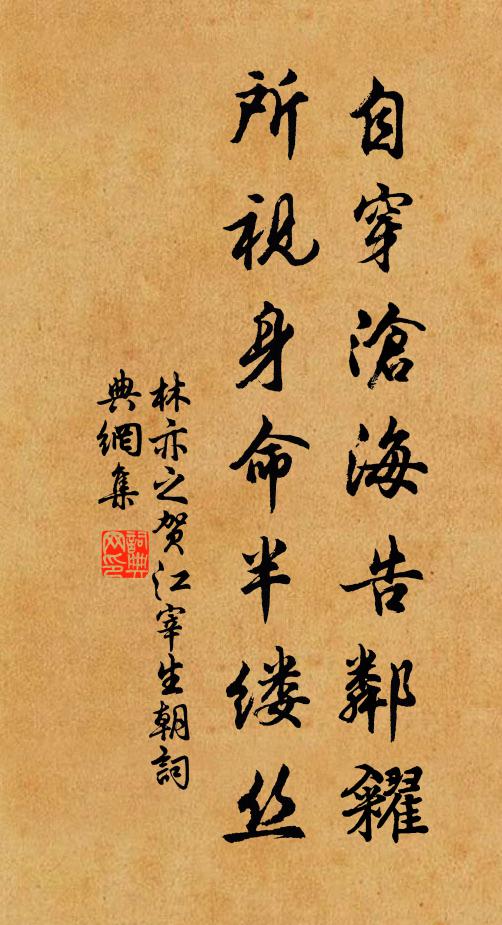 自穿滄海告鄰糴
所視身命半缕丝
林亦之贺江宰生朝詞
典網集
詞典网印